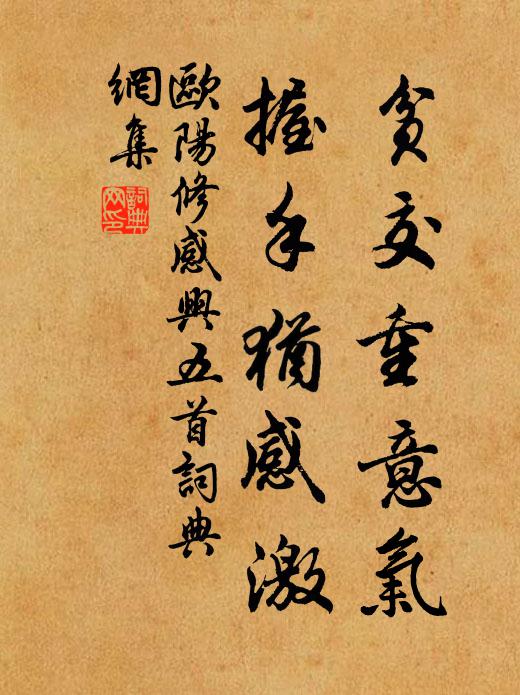 貧交重意氣
握手猶感激
歐陽修感興五首詞典
網集
詞典
网印